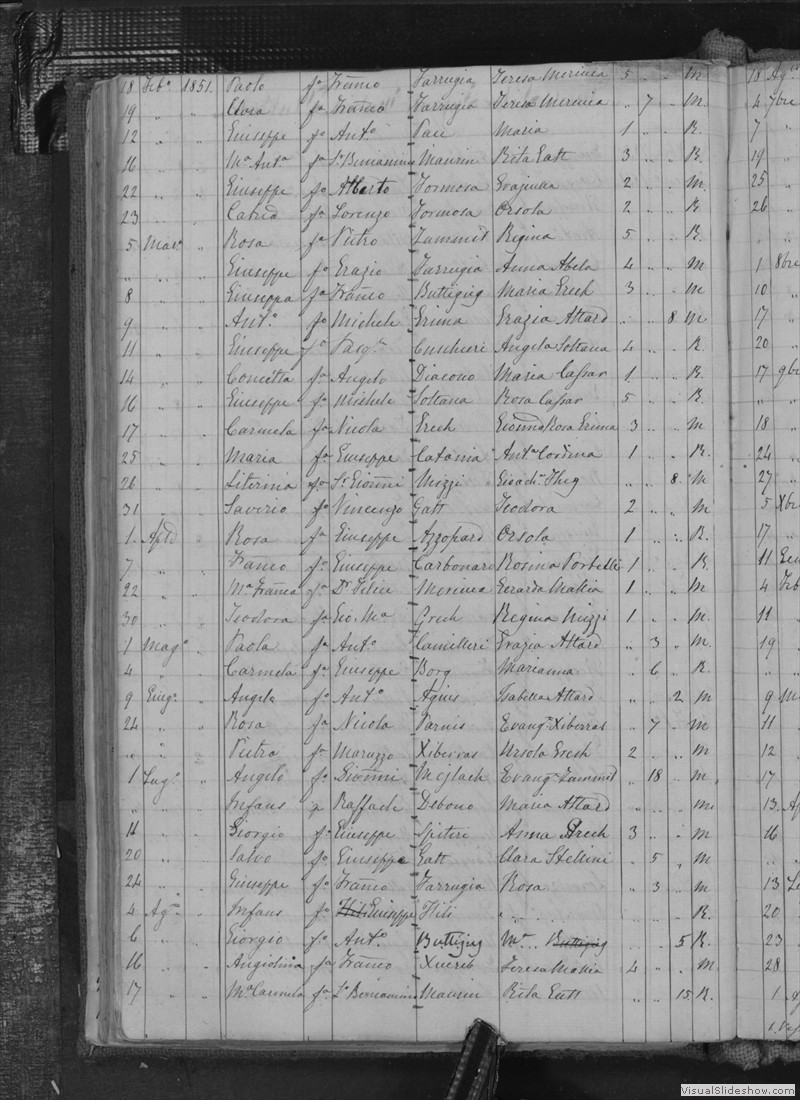 18 Feb.o 1851. Paolo f.o Franco Farrugia Teresa Mercieca 5 .. .. M 18 Ag.o
19 " " Clora f.a Franco Farrugia Teresa Mercieca " 7 .. M. 4 7bre
12 " " Giuseppe f.o Ant.o Pace Maria 1 .. .. R. 7 "
16 .. .. M.a Ant.a f.a Sr Beniamino Maurin Rita Gatt 3 .. .. R. 19
22 .. .. Giuseppe f.o Alberto Formosa 2 .. .. M. 25
23 .. .. f.a Lorenzo Formosa Orsola 2 .. .. R 26
5 Mar.o " Rosa f.a Pietro Zammit Regina 5 .. .. R.
" .. .. Giuseppe f.o Grazio Farrugia Anna Abela 4 .. .. M 1 8bre
8 .. .. Giuseppa f.a Franco Buttigieg Maria Grech 3 .. .. M 10
9 .. .. Ant.o f.o Michele Grima Grazia Attard .. .. 8 M 17
11 .. .. Giuseppe f.o Pasq.e Cuschieri Angela Soltana 4 .. .. R. 20
14 .. .. Concetta f.a Angelo Diacono Maria Cassar 1 .. .. R. 17 9bre
16 .. .. Giuseppe f.o Michele Soltana Rosa Cassar 5 .. .. R. " "
17 .. .. Carmela f.a Nicola Grech Giovanna Rosa Grima 3 .. .. M 18
25 .. .. Maria f.a Giuseppe Catania Ant.a 1 .. .. R. 24
26 .. .. f.a Sr Giovanni Mizzi .. .. 8. M 27
31 .. .. Saverio f.o Vincenzo Gatt Teodora 2 .. .. M 5 Xbre
1 Aple .. Rosa f.a Giuseppe Azzopard Orsola 1 .. .. R. 17
7 .. .. Franco f.o Giuseppe Carbonari Rosina 1 .. .. R. 11
22 .. .. M.a Franca f.a Dr Felice Mercieca Mallia 1 .. .. M 4 Feb
30 .. .. Teodora f.a Gio. M.a Grech Regina Mizzi 1 .. .. M. 11
1 Mag.o .. Paola f.a Ant.o Camilleri Grazia Attard .. 3 .. M. 19
4 .. .. Carmela f.a Giuseppe Borg Marianna .. 6 .. R.
9 Giug.o .. Angela f.a Ant.o Agius Isabella Attard " .. 2 M 9
24 .. .. Rosa f.a Nicola Parnis Evang.a Xiberras .. 7 .. M 11
" .. .. Pietro f.o Maruzzo Xiberras Ursola Grech 2 .. .. M 12
1 Lug.o .. Angelo f.o Giovanni Mejlach Evang.a Zammit .. 18 .. M, 17
" .. .. Infans f.o Raffaele Debono Maria Attard .. .. .. M. 13 Ap
11 .. .. Giorgio f.o Giuseppe Spiteri Anna Grech 3 .. .. M 16
20 .. .. Salvo f.o Giuseppe Gatt Clara Stellini .. 5 .. M
24 .. .. Giuseppe f.o Franco Farrugia Rosa .. 3 .. M 13
4 Ag.o .. Infans f.o Giuseppe Hili .. .. .. R. 20
6 .. .. Giorgio f.o Ant.o Buttigieg M.a Buttigieg .. .. 5 R. 23
16 .. .. Angiolina f.a Franco Xuereb Teresa Mallia 4 .. .. M. 28
17 .. .. M.a Carmela f.a Sr Beniamino Maurin Rita Gatt .. .. 15 R. 1
VisualSlideshow.com